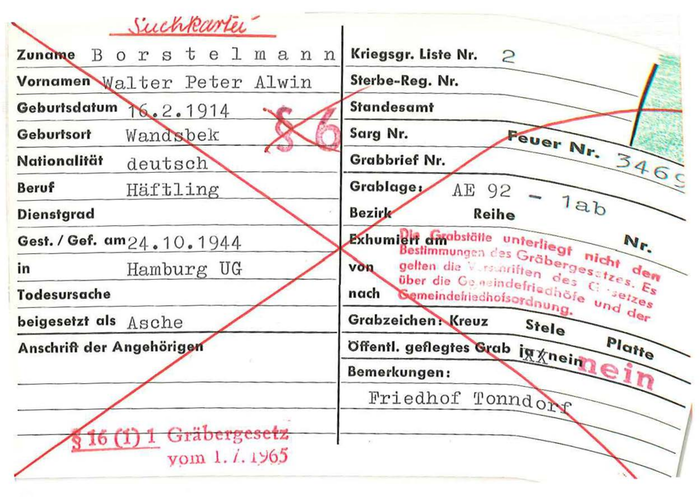 Suchkartei
Zuname Borstelmann
Vornamen Walter Peter Alwin
Geburtsdatum 16.2.1914
§ 6
Geburtsort Wandsbek
Nationalität deutsch
Beruf Häftling
Dienstgrad
Gest. / Gef. am 24.10.1944
in Hamburg UG
Todesursache
beigesetzt als Asche
Anschrift der Angehörigen
§ 16 (1) 1 Gräbergesetz
vom 1.7.1965
Kriegsgr. Liste Nr. 2
Sterbe-Reg. Nr.
Standesamt
Sarg Nr. Feuer Nr. 3469
Grabbrief Nr.
Grablage: AE 92 - 1ab
Bezirk Reihe Nr.
Exhumiert am
von
nach
Die Grabstätte unterliegt nicht den
Bestimmungen des Gräbergesetzes. Es
gelten die Vorschriften des Gesetzes
über die Gemeindefriedhöfe und der
Gemeindefriedhofsordnung.
Grabzeichen: Kreuz Stele Platte
Öffentl. gepflegtes Grab nein nein
Bemerkungen:
Friedhof Tonndorf